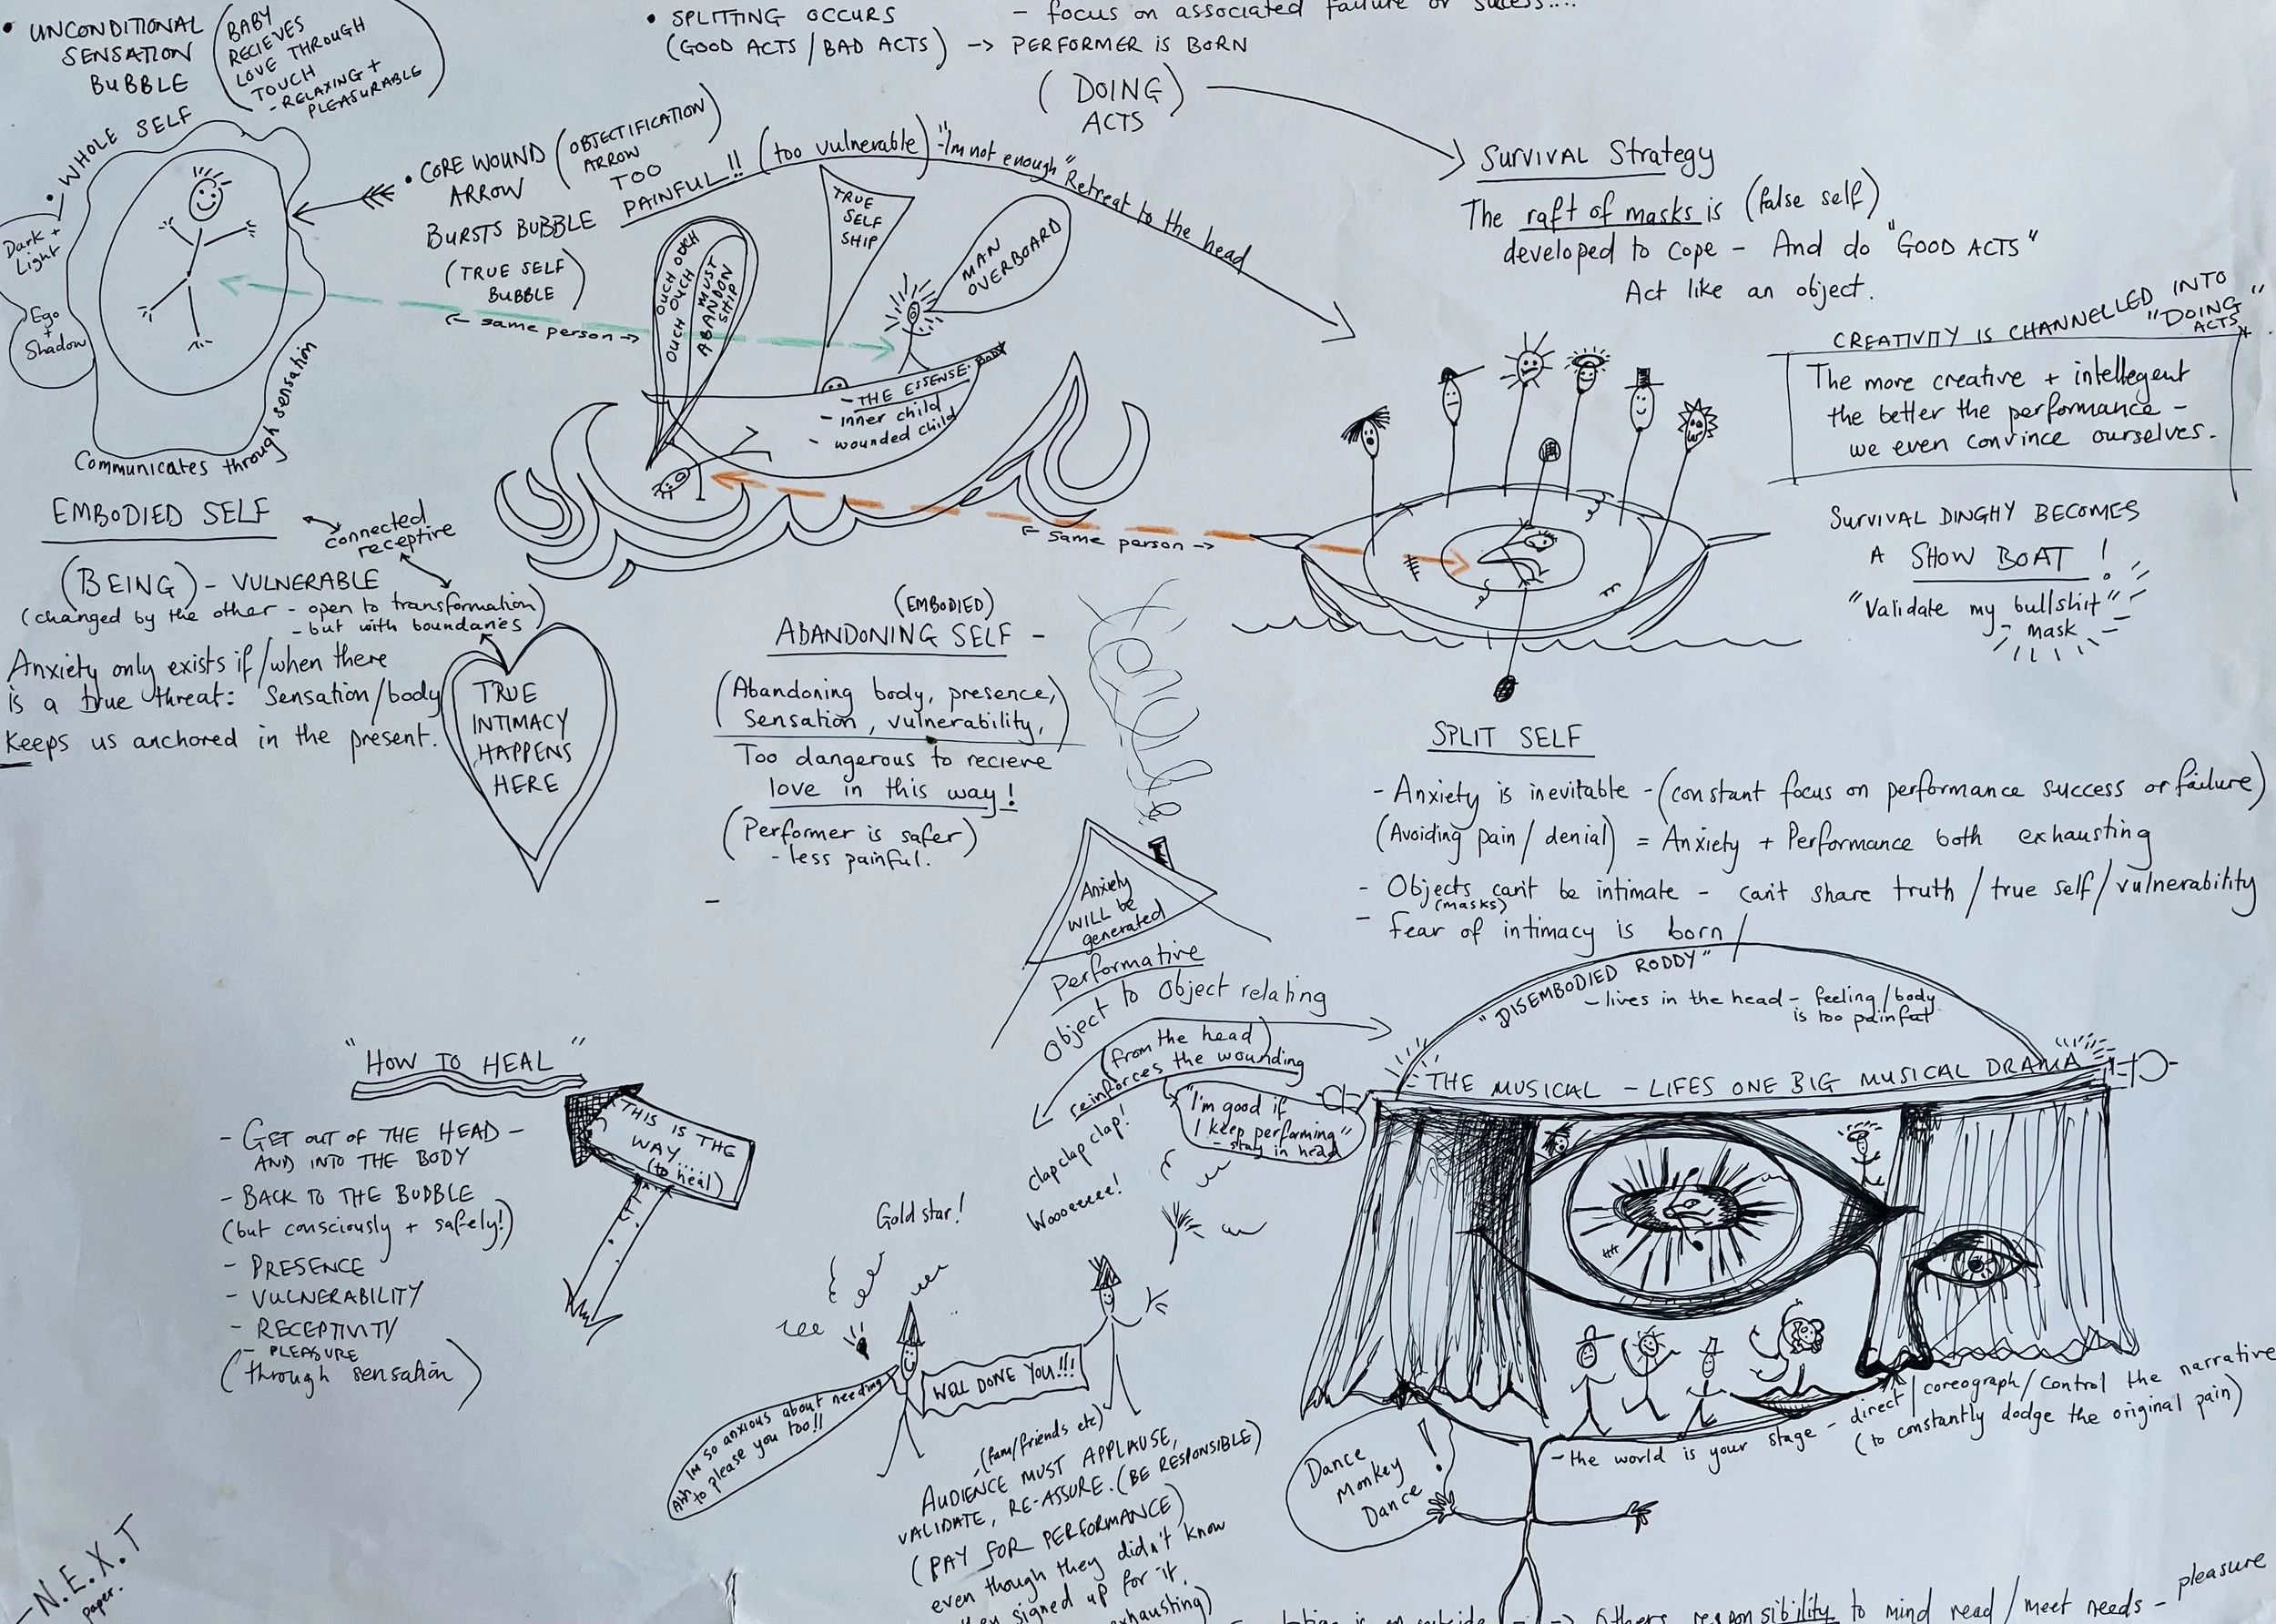 • UNCONDITIONAL
SENSATION
BUBBLE
(BABY
RECIEVES
LOVE THROUGH
TOUCH
- RELAXING +
PLEASURABLE)
• SPLITTING OCCURS
(GOOD ACTS / BAD ACTS) -> PERFORMER IS BORN
- focus on associated failure or sucess....
(DOING)
ACTS
• WHOLE SELF
Dark +
Light
Ego
+
Shadow
Communicates through sensation
• CORE WOUND
ARROW
(OBJECTIFICATION
ARROW
TOO
PAINFUL!!
BURSTS BUBBLE
(TRUE SELF
BUBBLE)
(too vulnerable) - "I'm not enough" Retreat to the head
<- same person ->
OUCH OUCH
OUCH OUCH
MUST
ABANDON
SHIP
TRUE
SELF
SHIP
MAN
OVERBOARD
- THE ESSENSE. BABY
- inner child
- wounded child
<- same person ->
SURVIVAL Strategy
The raft of masks is (false self)
developed to cope - And do "GOOD ACTS"
Act like an object.
CREATIVITY IS CHANNELLED INTO
"DOING
ACTS"
The more creative + intellegent
the better the performance -
we even convince ourselves.
SURVIVAL DINGHY BECOMES
A SHOW BOAT !
"Validate my bullshit"
- mask
EMBODIED SELF
connected
receptive
(BEING) - VULNERABLE
(changed by the other - open to transformation)
- but with boundaries
Anxiety only exists if/when there
is a true threat: Sensation/body
Keeps us anchored in the present.
TRUE
INTIMACY
HAPPENS
HERE
(EMBODIED)
ABANDONING SELF -
(Abandoning body, presence,
sensation, vulnerability,)
Too dangerous to recieve
love in this way!
(Performer is safer)
- less painful.
SPLIT SELF
- Anxiety is inevitable - (constant focus on performance success or failure)
(Avoiding pain / denial) = Anxiety + Performance both exhausting
- Objects can't be intimate - can't share truth / true self / vulnerability
(masks)
- fear of intimacy is born /
Anxiety
WILL be
generated
Performative
Object to Object relating
(from the head)
reinforces the wounding
"I'm good if
I keep performing"
- stay in head
"DISEMBODIED RODDY"
- lives in the head - feeling/body
is too painful
THE MUSICAL - LIFES ONE BIG MUSICAL DRAMA
"HOW TO HEAL"
- GET OUT OF THE HEAD -
AND INTO THE BODY
- BACK TO THE BUBBLE
(but consciously + safely!)
- PRESENCE
- VULNERABILITY
- RECEPTIVITY
- PLEASURE
(through sensation)
THIS IS THE
WAY.....
(to heal)
Gold star!
clap clap clap!
Woooeeee!
WELL DONE YOU!!!
Ahh, Im so anxious about needing
to please you too!!
(fam/friends etc)
AUDIENCE MUST APPLAUSE,
VALIDATE, RE-ASSURE. (BE RESPONSIBLE)
(PAY FOR PERFORMANCE)
even though they didn't know
they signed up for it.
exhausting)
Dance
Monkey
Dance !
- the world is your stage - direct / coreograph / control the narrative
(to constantly dodge the original pain)
-> Others responsibility to mind read / meet needs - pleasure
- N.E.X.T
paper.